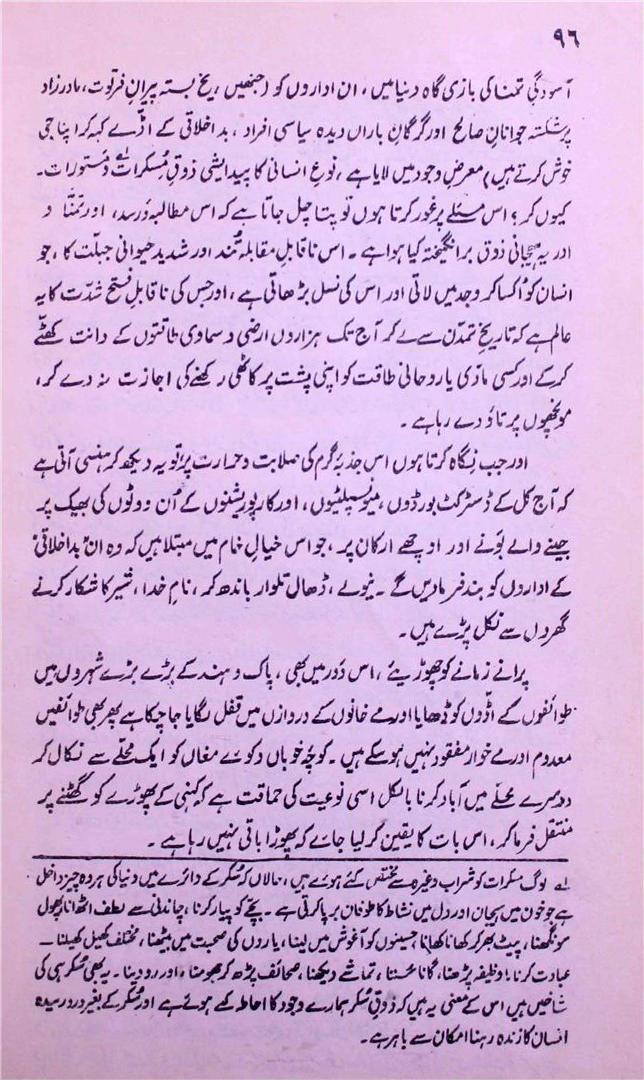 ۹۶
آسودگیِ تمنا کی بازی گاہ دنیا میں، ان اداروں کو (جنھیں یخ بستہ پیرانِ فرتوت، مادر زاد
پرشکستہ جوانانِ صالح اور گرگانِ باراں دیدہ سیاسی افراد، بداخلاقی کے اڈّے کہہ کر اپنا جی
خوش کرتے ہیں) معرضِ وجود میں لایا ہے، نوعِ انسانی کا پیدایشی ذوقِ مُسکرات لے و مستورات۔
کیوں کر؟ اس مسئلے پر غور کرتا ہوں تو پتا چل جاتا ہے کہ اس مطالبہ و رسد، اور تمنّا و
اور یہ ہیجانی ذوق برانگیختہ کیا ہوا ہے۔ اس ناقابلِ مقابلہ تُند اور شدید حیوانی جبلّت کا، جو
انسان کو اُکسا کر وجد میں لاتی اور اس کی نسل بڑھاتی ہے، اور جس کی ناقابلِ فسخ شدّت کا یہ
عالم ہے کہ تاریخِ تمدّن سے لے کر آج تک ہزاروں ارضی و سماوی طاقتوں کے دانت کھٹّے
کرکے اور کسی مادّی یا روحانی طاقت کو اپنی پشت پر کاٹھی رکھنے کی اجازت نہ دے کر،
مونچھوں پر تاؤ دے رہا ہے۔
اور جب نگاہ کرتا ہوں اس جذبۂ گرم کی صلابت و حرارت پر تو یہ دیکھ کر ہنسی آتی ہے
کہ آج کل کے ڈسٹرکٹ بورڈوں، میونسپلیٹیوں، اور کارپوریشنوں کے اُن ووٹوں کی بھیک پر
جینے والے بَونے اور اوچھے ارکان پر، جو اس خیالِ خام میں مبتلا ہیں کہ وہ ان "بداخلاقی"
کے اداروں کو بند فرمادیں گے۔ نیولے، ڈھال تلوار باندھ کر، نامِ خدا، شیر کا شکار کرنے
گھروں سے نکل پڑے ہیں۔
پرانے زمانے کو چھوڑیئے، اس دَور میں بھی، پاک و ہند کے بڑے بڑے شہروں میں
طوائفوں کے اڈّوں کو ڈھایا اور مے خانوں کے دروازں میں قفل لگایا جا چکا ہے پھر بھی طوائفیں
معدوم اور مے خوار مفقود نہیں ہوسکے ہیں۔ کوچۂ خوباں و کوئے مغاں کو ایک محلے سے نکال کر
دوسرے محلّے میں آباد کرنا بالکل اسی نوعیت کی حماقت ہے کہ کہنی کے پھوڑے کو گھٹنے پر
منتقل فرما کر، اس بات کا یقین کرلیا جائے کہ پھوڑا باقی نہیں رہا ہے۔
لے لوگ مسکرات کو شراب وغیرہ سے مختص کئے ہوئے ہیں، حالاں کہ مُسکر کے دائرے میں دنیا کی ہر وہ چیز داخل
ہے جو خون میں ہیجان اور دل میں نشاط کا طوفان برپا کرتی ہے۔ بچّے کو پیار کرنا، چاندنی سے لطف اٹھانا، پھول
سونگھنا، پیٹ بھر کر کھانا کھانا، حسینوں کو آغوش میں لینا، یاروں کی صحبت میں بیٹھنا، مختلف کھیل کھیلنا۔
عبادت کرنا، وظیفہ پڑھنا، گانا سننا، تماشے دیکھنا، صحائف پڑھ کر جھومنا، اور رو دینا۔ یہ بھی مُسکر ہی کی
شاخیں ہیں اس کے معنی یہ ہیں کہ ذوقِ مُسکر ہمارے وجود کا احاطہ کئے ہوئے ہے اور مُسکر کے بغیر درد رسیدہ
انسان کا زندہ رہنا امکان سے باہر ہے۔